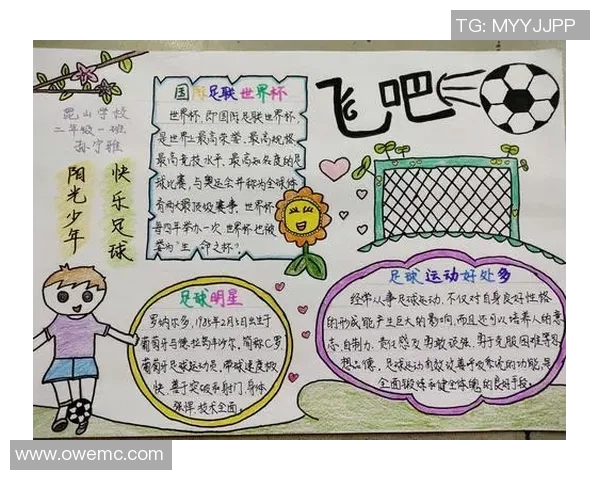 TG: MYYJJPP
飞吧
昆山学校
二年级一班
阳光少年
快乐足球
国际足联世界杯
世界杯,即国际足联世界杯,
是世界上最高荣誉、最高规格、
最高竞技水平、最高知名度的足
球比赛,与奥运会并称为全球体
育两大最顶级赛事。世界杯
每四年举办一次,世界杯也被
誉为“生命之杯”
足球明星
罗纳尔多,1985年2月5日出生于
葡萄牙马德拉群岛
简称C罗
葡萄牙足球运动员。带球速度极
快,善于突破和射门,身体
强悍,技术全面。
足球运动好处多
经常从事足球运动,不仅对自身良好性格
的形成能产生巨大的影响,而且还可以培养人的意
志、自制力、责任感及勇敢顽强、勇于克服困难等思
想品德。足球运动有效改善呼吸系统的功能,是
全面锻炼和健全体魄的良好手段。
www.owemc.com